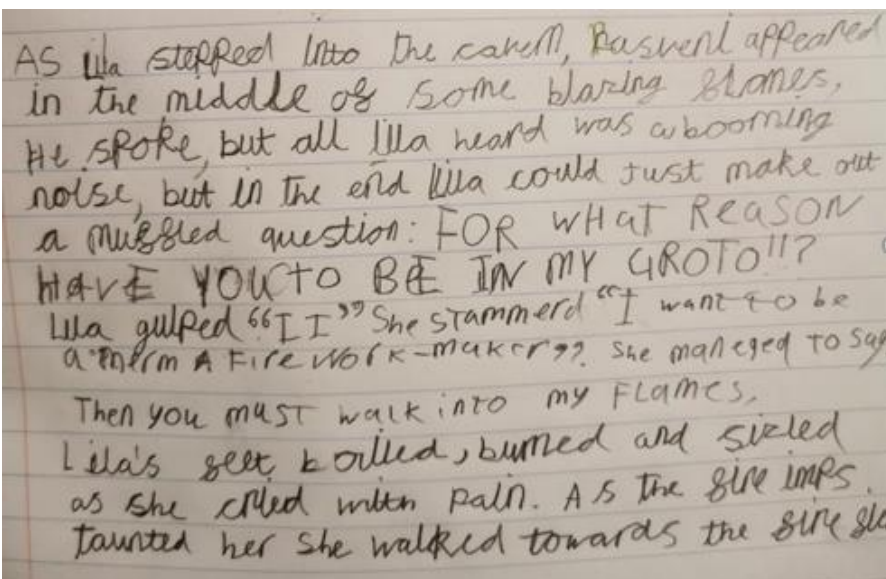 AS Lila stepped into the cavern, Rasvenl appeared
in the middle of some blazing flames,
He spoke, but all Lila heard was a booming
noise, but in the end Lila could just make out
a muffled question: FOR WHAT REASON
HAVE YOU TO BE IN MY GROTO!!?
Lila gulped “I I” She stammerd “I want to be
a erm A Firework-maker”. She maneged to say
Then you must walk into my Flames.
Lila's feet boiled, burned and sizled
as she cried with pain. As the fire imps
taunted her she walked towards the fire